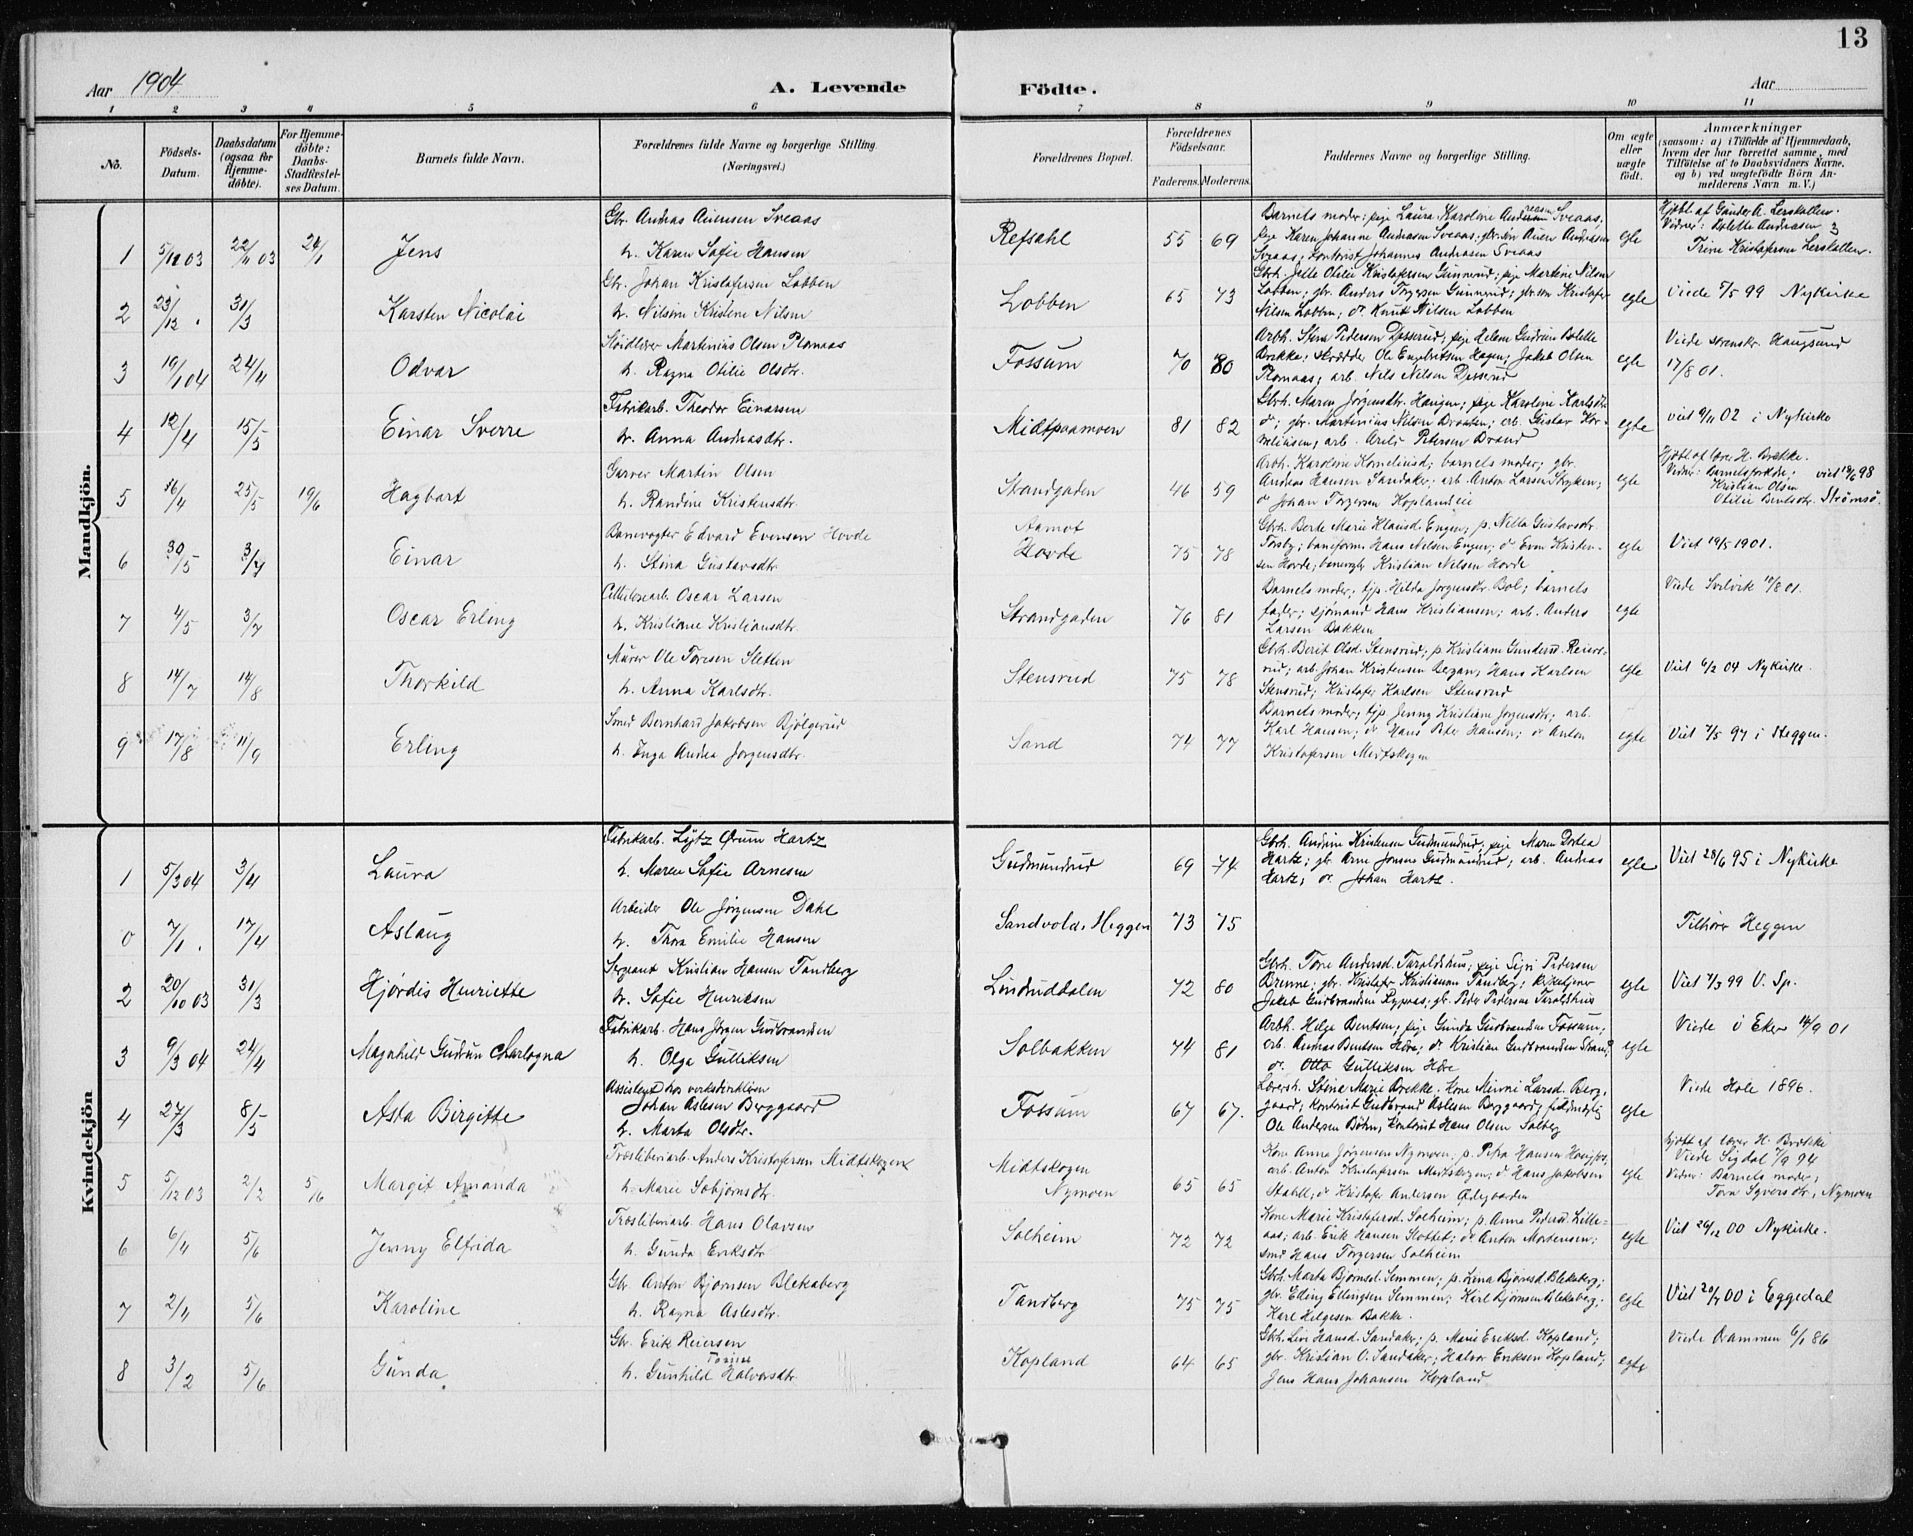 13
Aar 1904
A. Levende
Födte.
Aar
1 2 3 4 5 6 7 8 9 10 11
No.
Födsels-Datum.
Daabsdatum (ogsaa för Hjemme-döbte).
For Hjemme-döbte: Daabs-Stadfæstel-ses Datum.
Barnets fulde Navn.
Forældrenes fulde Navne og borgerlige Stilling.
(Næringsvei.)
Forældrenes Bopæl.
Forældrenes Födselsaar.
Faderens. Moderens.
Faddernes Navne og borgerlige Stilling.
Om ægte eller uægte födt.
Anmærkninger
(saasom: a) i Tilfælde af Hjemmedaab, hvem der har forrettet samme, med Tilföielse af to Daabsvidners Navne, og b) ved uægtefödte Börn An-melderens Navn m. V.)
Mandkjön.
1 5/11 03 22/11 03 24/1 Jens
Gbr. Andreas Auensen Sveaas
h. Karen Sofie Hansen
Refsahl 55 69
Barnets moder; pige Laura Karoline Andreasen Sveaas;
pige Karen Johanne Andreasen Sveaas; gbr. søn Auen Andreasen
Sveaas; kontorist Johannes Andreasen Sveaas
egte
Hjdbt. af Gunder A. Lerskallen.
Vidner: Andreasen &
Trine Kristofersen Lerskallen.
2 23/12 . 31/3 Karsten Nicolai
Gbr. Johan Kristofersen Lobben
h. Nilsine Kristene Nilsen
Lobben 65 73
Gbrh. Jette Otilie Kristofersen Gunnerud; pige Martine Nilsen
Lobben; gbr. Anders Torgersen Gunnerud; gbr. søn Kristofer
Nilsen Lobben; do Knut Nilsen Lobben
egte
Viede 7/5 99 Nykirke
3 19/1 04 24/4 Odvar
Sløidlærer Martinius Olsen Plomaas
h. Ragna Otilie Olsdtr.
Fossum 70 80
Arbh. Stina Pedersen Djsserud; pige Helene Gudrun Bolette
Brekke; Skrædder Ole Engebretsen Hagen; Jakob Olsen
Plomaas; arb. Nils Nilsen Djsserud
egte
Viede Haugsund
17/8 01.
4 12/4 15/5 Einar Sverre
Fabrikarb. Theodor Einarsen
h. Anna Andreasdtr.
Midtpaamoen 81 82
Gbrh. Maren Jørgensdtr. Haugen; pige Karoline Karlsdtr.
do; gbr. Martinius Nilsen Braaten; arb. Gustav Kor-
neliusen; arb. Arild Petersen Brand
egte
viet 9/11 02 i Nykirke
5 16/4 25/5 19/6 Hagbart
Garver Martin Olsen
h. Randine Kristensdtr.
Strandgaden 46 59
Arbh. Karoline Korneliusd; barnets moder; gbr.
Andreas Hansen Sandaker; arb. Anton Larsen Stryken;
do Johan Torgersen Koplandeie
egte
Hjdbt. af lærer H. Brekke.
Vidner: Barnets forældre; viet 19/6 98
Kristian Olsen
Otilie Bentsdtr. Strømsø.
6 30/5 3/7 Einar
Banevogter Edvard Evensen Hovde
h. Stina Gustavsdtr.
Aamot
Hovde 75 78
Gbrh. Berte Marie Klausd. Engen; p. Nilla Gustavsdtr.
Torsby; baneform. Hans Nilsen Engen; do Even Kristen-
sen Hovde; banevogter Kristian Nilsen Hovde
egte
Viet 19/5 1901.
7 4/5 3/7 Oscar Erling
Cellulosearb. Oscar Larsen
h. Kristiane Kristiansdtr.
Strandgaden 76 81
Barnets moder, tjp. Hilda Jørgensdtr. Bol; barnets
fader; sjømand Hans Kristiansen; arb. Anders
Larsen Bakken
egte
Viede Svelvik 18/8 01.
8 14/7 14/8 Thorkild
Murer Ole Toresen Sletten
h. Anna Karlsdtr.
Stensrud 75 78
Gbrh. Berit Olsd. Stensrud; p. Kristiane Gundersd. Reiers-
rud; arb. Johan Kristensen Hans Karlsen
Stensrud; Kristofer Karlsen Stensrud
egte
Viet 6/2 04 Nykirke.
9 17/8 11/9 Erling
Smed Bernhard Jakobsen Bjølgerud
h. Inga Andrea Jørgensdtr.
Sand 74 77
Barnets moder; tjp. Jenny Kristiane Jørgensdtr; arb.
Karl Hansen; do Hans Peter Hansen; do Anton
Kristofersen Midtskogen
egte
Viet 7/5 97 i Heggen.
Kvindekjön
1 5/3 04 3/4 Laura
Fabrikarb. Lytz Ørum Hartz
h. Maren Sofie Arnesen
Gudmundrud 69 74
Gbrh. Andrine Kristensen Gudmundrud; pige Maren Dortea
Hartz; gbr. Arne Jonsen Gudmundrud; arb. Andreas
Hartz; do. Johan Hartz.
egte
Viet 28/6 95 i Nykirke
0 7/1 . 17/4 Aslaug
Arbeider Ole Jørgensen Dahl
h. Thora Emilie Hansen
Sandvold, Heggen 73 75
Tilhører Heggen
2 20/10 03 31/3 Hjørdis Henriette
Sergeant Kristian Hansen Tandberg
h. Sofie Henriksen
Lindruddalen 72 80
Gbrh. Torine Andersd. Taraldshus; pige Sijri Pedersen
Brenne; gbr. Kristofer Kristiansen Tandberg; kirketjener
Jakob Gudbrandsen Rypaas; gbr. Peder Pedersen Taraldshus
egte
Viet 7/3 99 V. Sp.
3 9/3 04 24/4 Magnhild Gudrun Charlogna
Fabrikarb. Hans Jørgen Gudbrandsen
h. Olga Gulliksen
Solbakken 74 81
Arbh. Helga Bentsen; pige Gunda Gudbrandsen Fossum;
arb. Andreas Bentsen Hære; do Kristian Gudbrandsen Strand;
do. Otto Gulliksen Høre
egte
Viede i Eker 14/9 01
4 27/3 8/5 Asta Birgitte
Assistent hos verksdirektøren
Johan Aslesen Berggaard
h. Marta Olsdtr.
Fossum 67 67.
Lærerh. Stine Marie Brekke. Kone Minni Larsd. Berg-
gaard; kontorist Gudbrand Aslesen Berggaard;
Ole Andersen Bøhn; kontorist Hans Olsen Solberg
egte
Viede Hole 1896.
5 5/12 03 2/2 5/6 Margit Amanda
Træsliberiarb. Anders Kristofersen Midtskogen
h. Marie Sobjørnsdtr.
Midtskogen
Nymoen 65 65
Kone Anna Jørgensen Nymoen; p. Petra Hansen
arb. Anton Kristofersen Midtskogen; do Hans Jakobsen
Stabell; do Kristofer Andersen Ødegaarden
egte
hjdbt af lærer H. Brække
Viede Sigdal 7/9 94
Vidner: Barnets moder;
Torn Syversdtr, Nymoen
6 6/4 5/6 Jenny Elfrida
Træsliberiarb. Hans Olavsen
h. Gunda Eriksdtr
Solheim 72 72
Kone Marie Kristofersd. Solheim; p. Anna Pedersd. Lille-
aas; arb. Erik Hansen Slottet; do Anton Mortensen;
smd Hans Torgersen Solheim
egte
Viet 26/12 00 Nykirke.
7 2/4 5/6 Karoline
Gbr. Anton Bjørnsen Blekaberg
h. Ragna Aslesdtr.
Tandberg 75 75
Gbrh. Marta Bjørnsd. Semmen; p. Lina Bjørnsd. Blekaberg;
gbr. Elling Ellingsen Semmen; Karl Bjørnsen Blekaberg;
Karl Helgesen Bakke.
egte
Viet 20/7 00 i Eggedal
8 3/2 5/6 Gunda
Gbr. Erik Reiersen
h. Gunhild Torine Halvorsdtr.
Kopland 64 65
Gbrh. Live Hansd. Sandaker; p. Marie Eriksd. Kopland;
gbr. Kristian O. Sandaker; Halvor Eriksen Kopland;
Jens Hans Johansen Kopland
egte
Viede Drammen 6/1 86